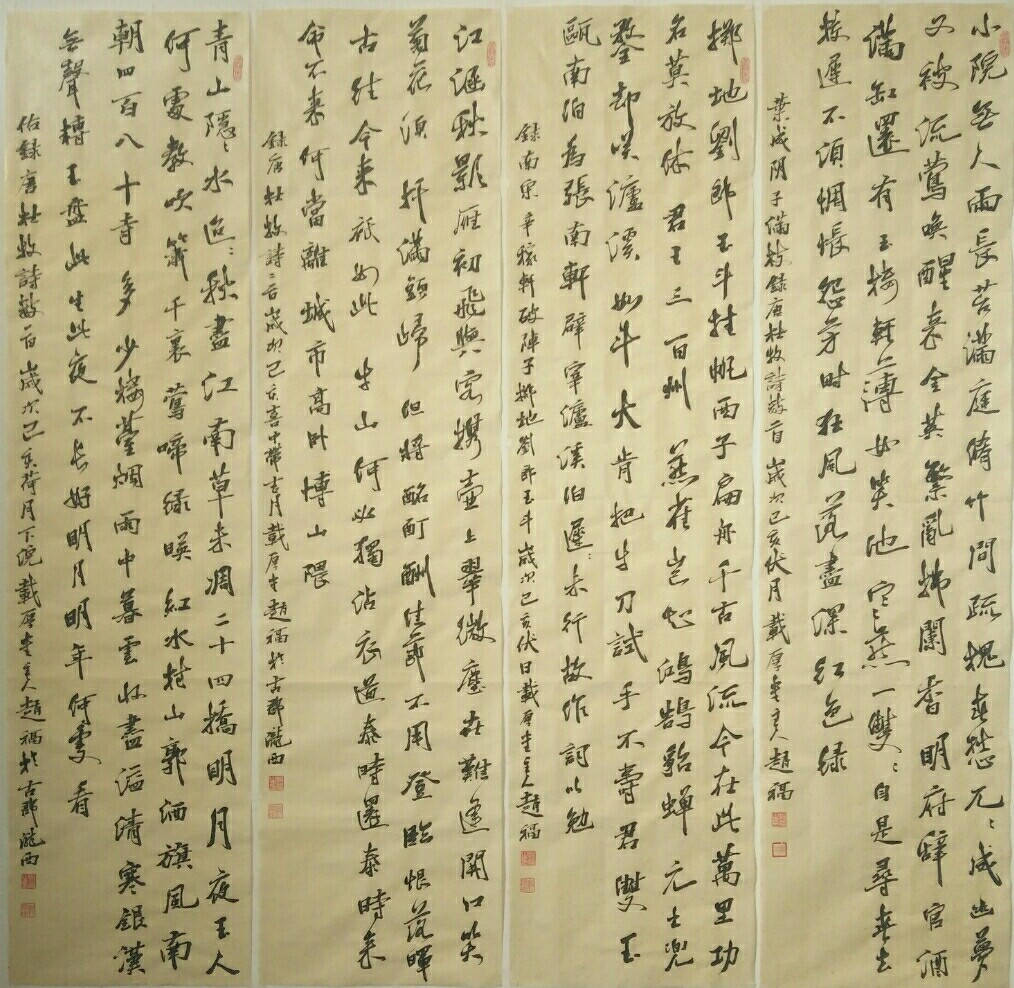 小院無人雨長苔滿庭脩竹間疏槐春愁兀〻成幽夢
又被流鶯喚醒來金英繁亂拂闌香明府辭官酒
滿缸還有玉樓輕薄女笑他寒燕一雙〻自是尋春去
挍遲不須惆悵怨芳時狂風落盡深紅色綠
葉成陰子滿枝錄唐杜牧詩數首歲次己亥伏月載厚堂主人趙福
擲地劉郎玉斗挂帆西子扁舟千古風流今在此萬里功
名莫放休君王三百州燕雀豈知鴻鵠貂蟬元出兜
鍪却笑瀘溪如斗大肯把牛刀試手不壽君雙玉
甌南伯為張南軒辟宰瀘溪伯遲〻未行故作詞以勉
錄南宋辛稼軒破陣子擲地劉郎玉斗歲次己亥伏日載厚堂主人趙福
江涵秋影雁初飛與客攜壺上翠微塵世難逢開口笑
菊花須插滿頭歸但將酩酊酬佳節不用登臨恨落暉
古往今來祇如此牛山何必獨沾衣道泰時還泰時來
命不來何當離城市高臥博山隈
錄唐杜牧詩二首歲次己亥喜中帶吉月載厚堂趙福於古郡隴西
青山隱〻水迢〻秋盡江南草未凋二十四橋明月夜玉人
何處教吹簫千里鶯啼綠映紅水村山郭酒旗風南
朝四百八十寺多少樓臺烟雨中暮雲收盡溢清寒銀漢
無聲轉玉盤此生此夜不長好明月明年何處看
佑錄唐杜牧詩數首歲次己亥荷月下浣載厚堂主人趙福於古郡隴西